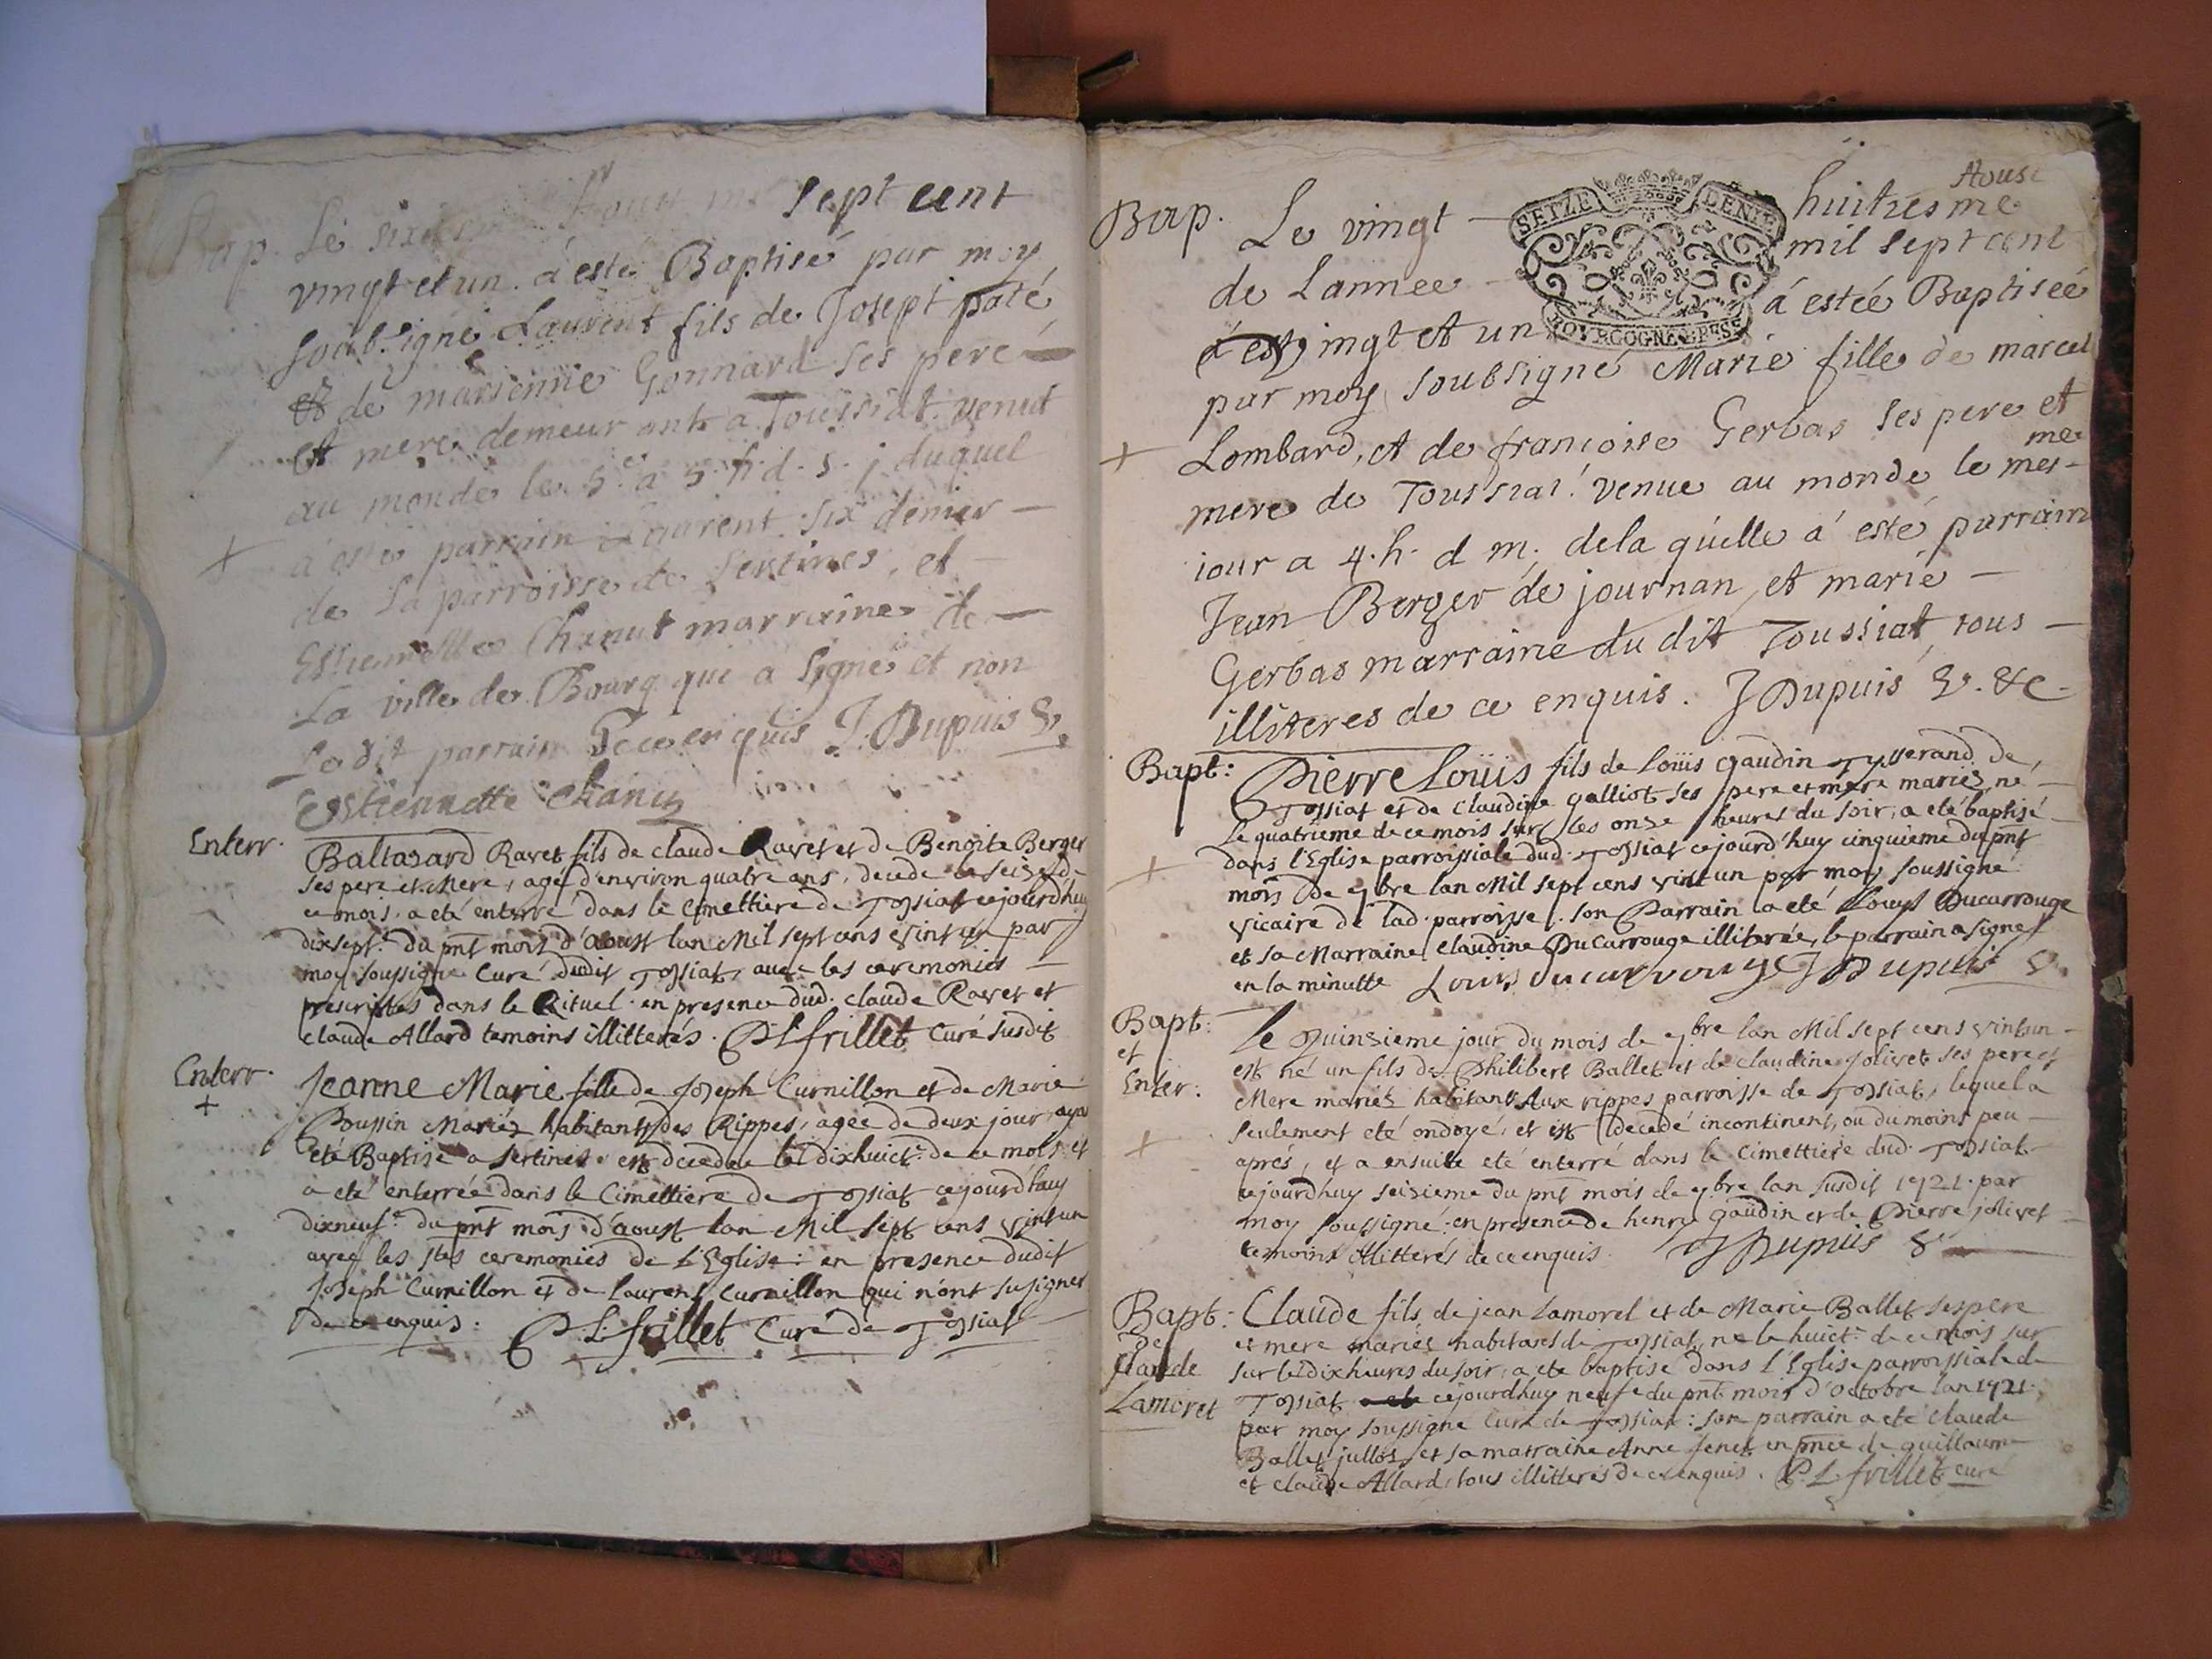 Bap. Le sixiesme Aoust mil sept cent
vingt et un. á esté Baptisé par moy
soubsigné Laurent fils de Josept paté
et de marienne Gonnard ses pere
et mere demeurants a Toussiat. venut
au monde le 5e a 5. h. d. s. j duquel
á esté parrain Laurent six denier
de La parroisse de sertines, et
Estiennette Chanut marraine de
La ville de Bourg qui a signé et non
Le dit parrain De ce enquis J. Dupuis V.
Estiennette Chanu
Enterr. Baltasard Ravet fils de claude Ravet et de Benoite Berger
ses pere et Mere, agé d'environ quatre ans, decede le seize d.
ce mois, a eté enterré dans le Cimettiere de Tossiat cejourdhuy
dixsept.e du pnt mois d'aoust lan Mil sept cens vint un par
moy soussigné Curé dudit Tossiat, avec les ceremonies
prescrittes dans le Rituel. en presence dud. claude Ravet et
claude Allard temoins illitterés. P L frillet Curé susdit
Enterr.
+
Jeanne Marie fille de Joseph Curnillon et de Marie
Poussin Mariéz habitants des Rippes, agée de deux jour ayant
eté Baptisé a sertines. est decedée le dixhuict.e de ce mois et
a eté enterrée dans le Cimettiere de Tossiat cejourd'huy
dixneuf.e du pnt mois d'aoust lan Mil sept cens vint un
avec les stes ceremonies de L'Eglise: en presence dudit
Joseph Curnillon et de laurens Curnillon qui n'ont su signer
de ce enquis: P L frillet Curé de Tossiat
SEIZE DENIE
BOURGOGNE BRESSE
Aoust
Bap. Le vingt huitiésme
de Lannee mil sept cent
vingt et un á estéé Baptiséé
par moy soubsigné Marie fille de marcel
Lombard, et de francoise Gerbas ses pere et
mere de Toussiat. venue au monde le mesme
iour a 4. h. d m. dela quélle á esté parrain
Jean Berger de journan, et marie
Gerbas marraine du dit Toussiat, tous
illiteres de ce enquis. J Dupuis V. &c.
Bapt: Pierre Loüis fils de loüis Gaudin Tysserand de
Tossiat et de Claudine galliot ses pere et mere mariez, né
le quatrieme de ce mois sur les onze heures du soir, a eté baptisé
dans l'Eglise parroissiale dud. Tossiat cejourd'huy cinquieme du pnt
mois de 7bre lan Mil sept cens vint un par moy soussigné
vicaire de lad. parroisse. son Parrain a eté Louys Ducarrouge
et sa Marraine Claudine DuCarrouge illiterée, le parrain a signé
en la minutte Louis ducarrouge J Dupuis V.
Bapt:
et
Enter:
Le Quinzieme jour du mois de 7bre lan Mil sept cens vint un
est né un fils de Philibert Ballet et de claudine Jolivet ses pere et
Mere mariéz habitants Aux rippes parroisse de Tossiat, lequel a
seulement eté ondoyé, et est decedé incontinent, ou du moins peu
aprés, et a ensuite eté enterré dans le Cimettiere dud. Tossiat
cejourdhuy seizieme du pnt mois de 7bre lan susdit 1721. par
moy soussigné. en presence de henry gaudin et de Pierre jolivet
temoins illitterés de ce enquis. J Dupuis V
Bapt:
De
Claude
Lamoret
Claude fils de jean Lamorel et de Marie Ballet ses pere
et mere mariéz habitants de Tossiat, né le huict.e de ce mois sur
sur les dix heures du soir, a eté baptisé dans l'Eglise parroissiale de
Tossiat cejourdhuy neufe du pnt mois d'octobre lan 1721.
par moy soussigné Curé de Tossiat: son parrain a eté claude
Ballet jullos, et sa marraine Anne fenet en pnce de guillaume
et claude Allard tous illitterés de ce enquis. P. L frillet curé